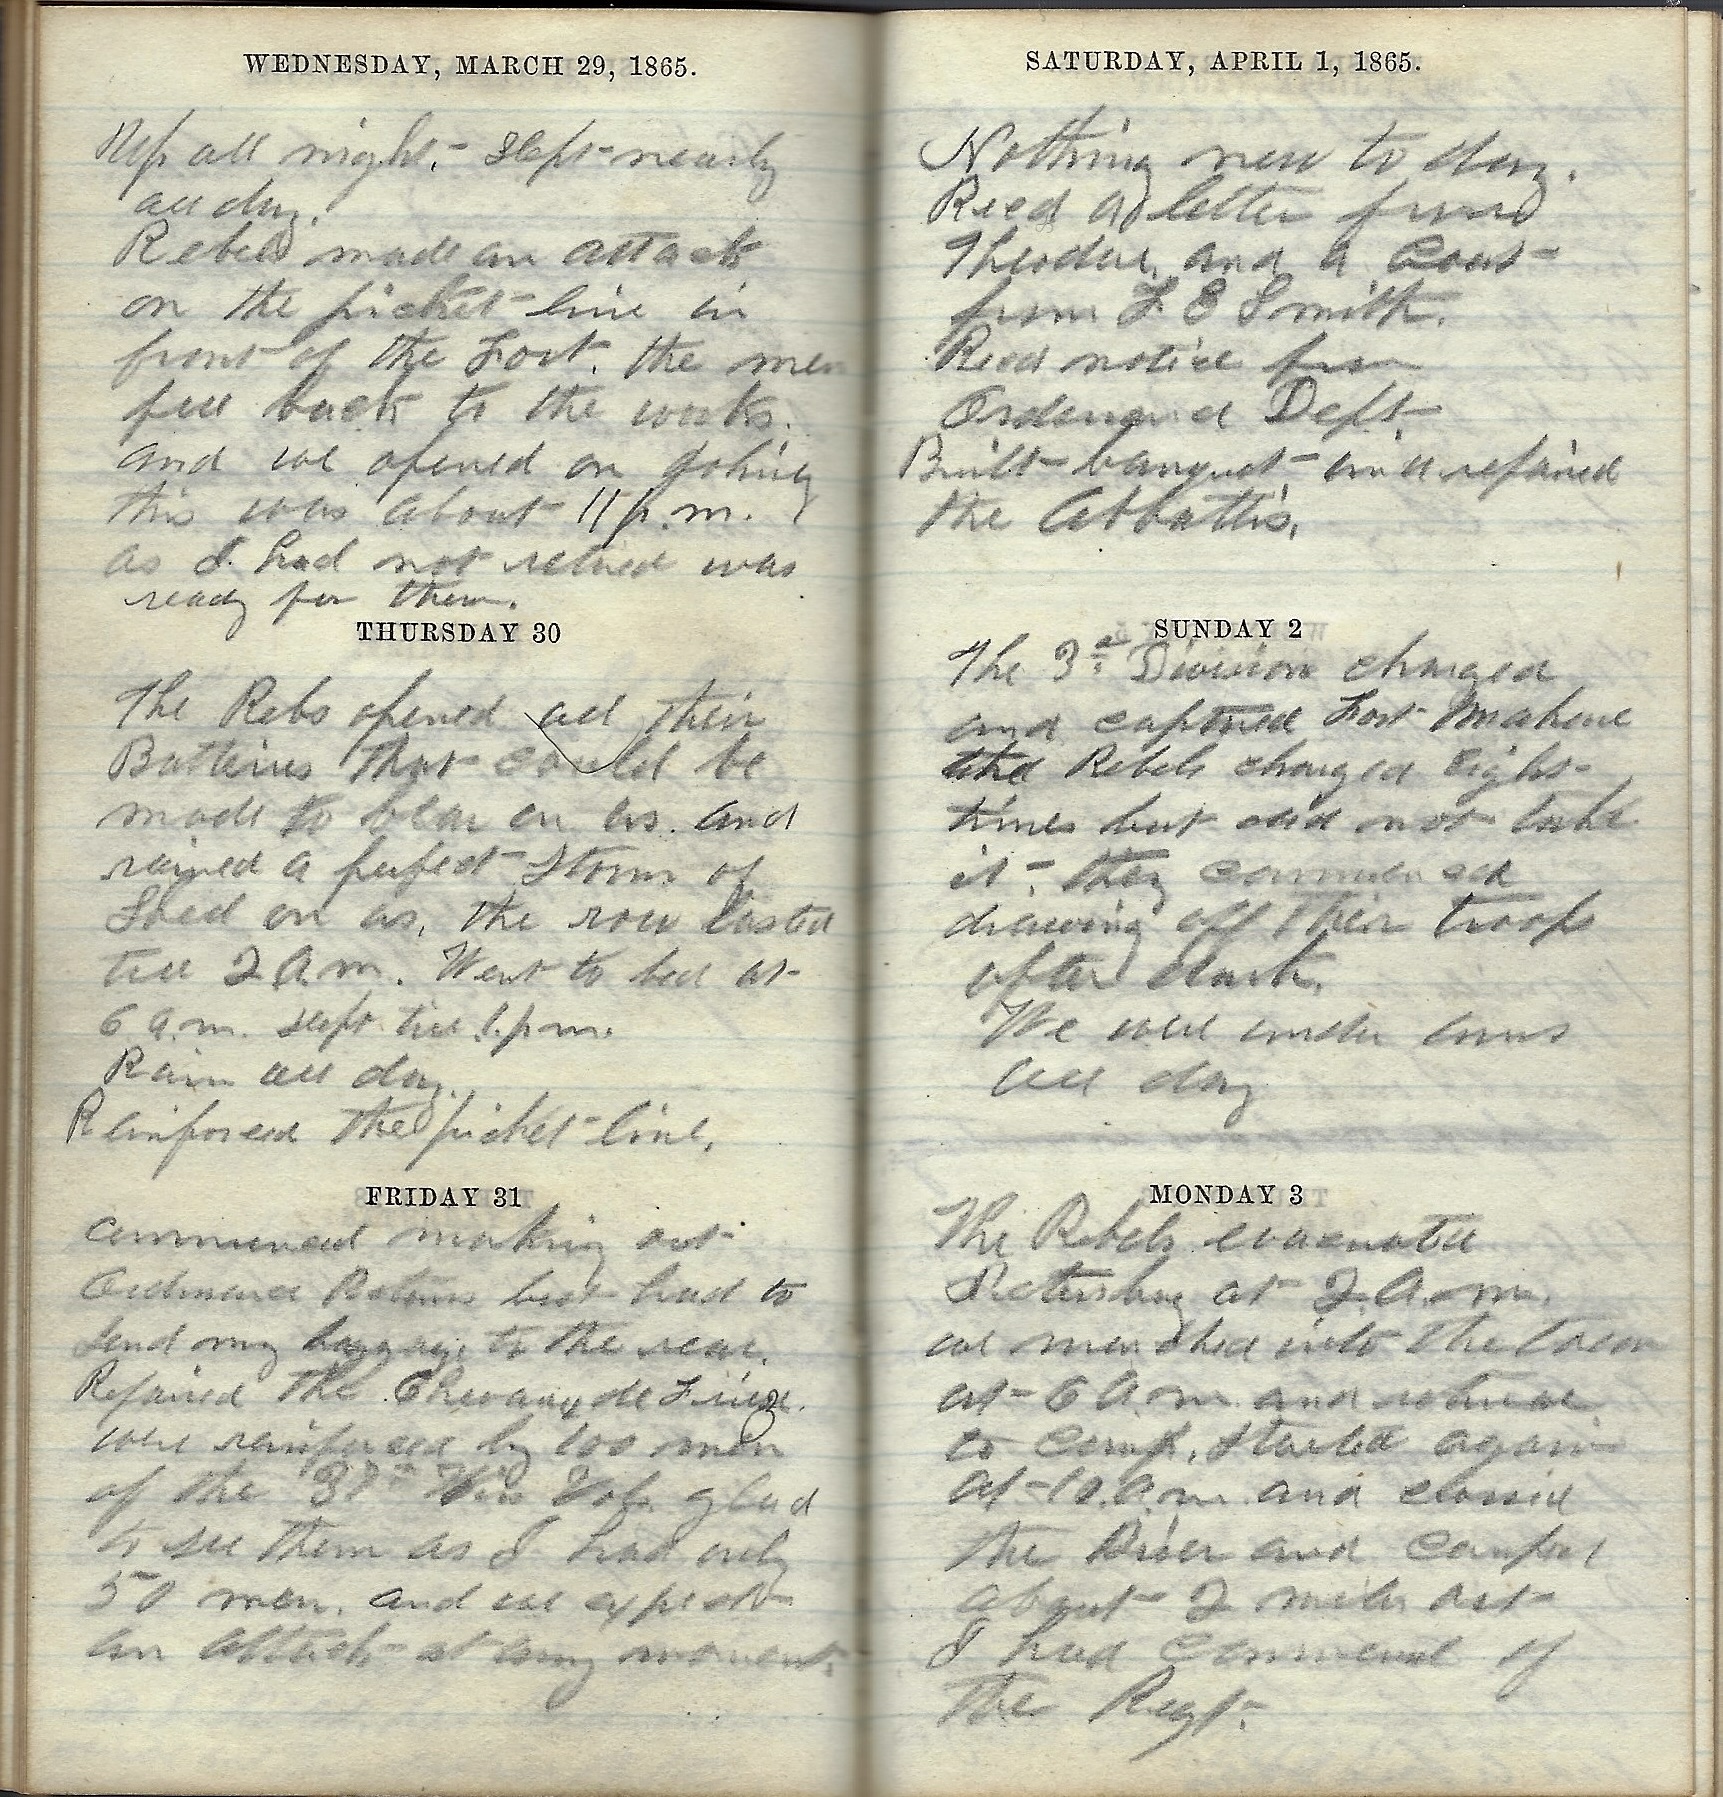 WEDNESDAY, MARCH 29, 1865.
Up all night, - slept nearly
all day.
Rebels made an attack
on the picket line in
front of the Fort. the men
fell back to the works.
and we opened on
this was about 11 p.m.
as I had not retired was
ready for them.
THURSDAY 30
The Rebs opened all their
Batteries that could be
made to bear on us. and
rained a perfect Storm of
on us, the row lasted
till 2 A.m. Went to bed at
6 a.m. slept till 1.p.m.
Rain all day.
Reinforced the picket line.
FRIDAY 31
commenced making out
Ordinance Returns but had to
send my baggage to the rear.
Repaired the de
were reinforced by 100 men
of the Wis Vols. glad
to see them as I had only
50 men. and we expect
an attack at any moment.
SATURDAY, APRIL 1, 1865.
Nothing new to day.
Recd a letter from
Theodore and a
from Smith.
Recd notice from
Dept.
Built banquet and repaired
the Abbattis.
SUNDAY 2
The 3d Division charged
and captured Fort Mahone
the Rebels charged Eight
times but did not take
it - they commenced
drawing off their troops
after dark.
We were under arms
all day
MONDAY 3
The Rebels evacuated
Petersburg at 2 A.m.
we marched into the town
at 6 A.m. and
to camp. started again
at 10.a.m. and crossed
the River and camped
about 2 miles out
I had command of
the Regt.